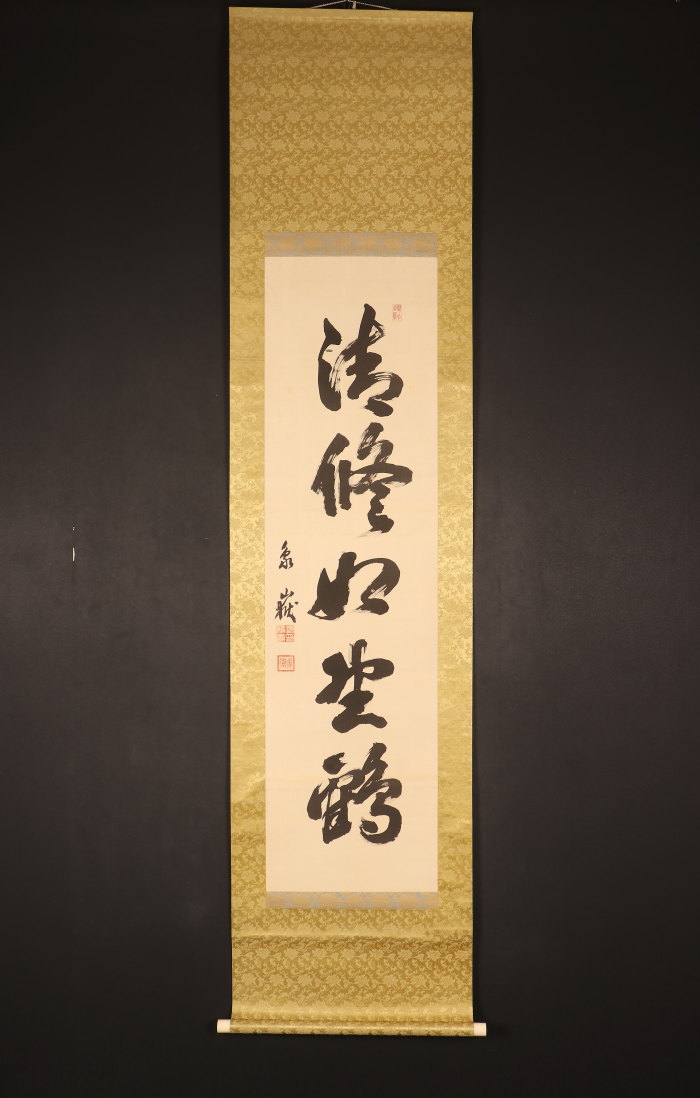 清修如坐鶴
象嶽